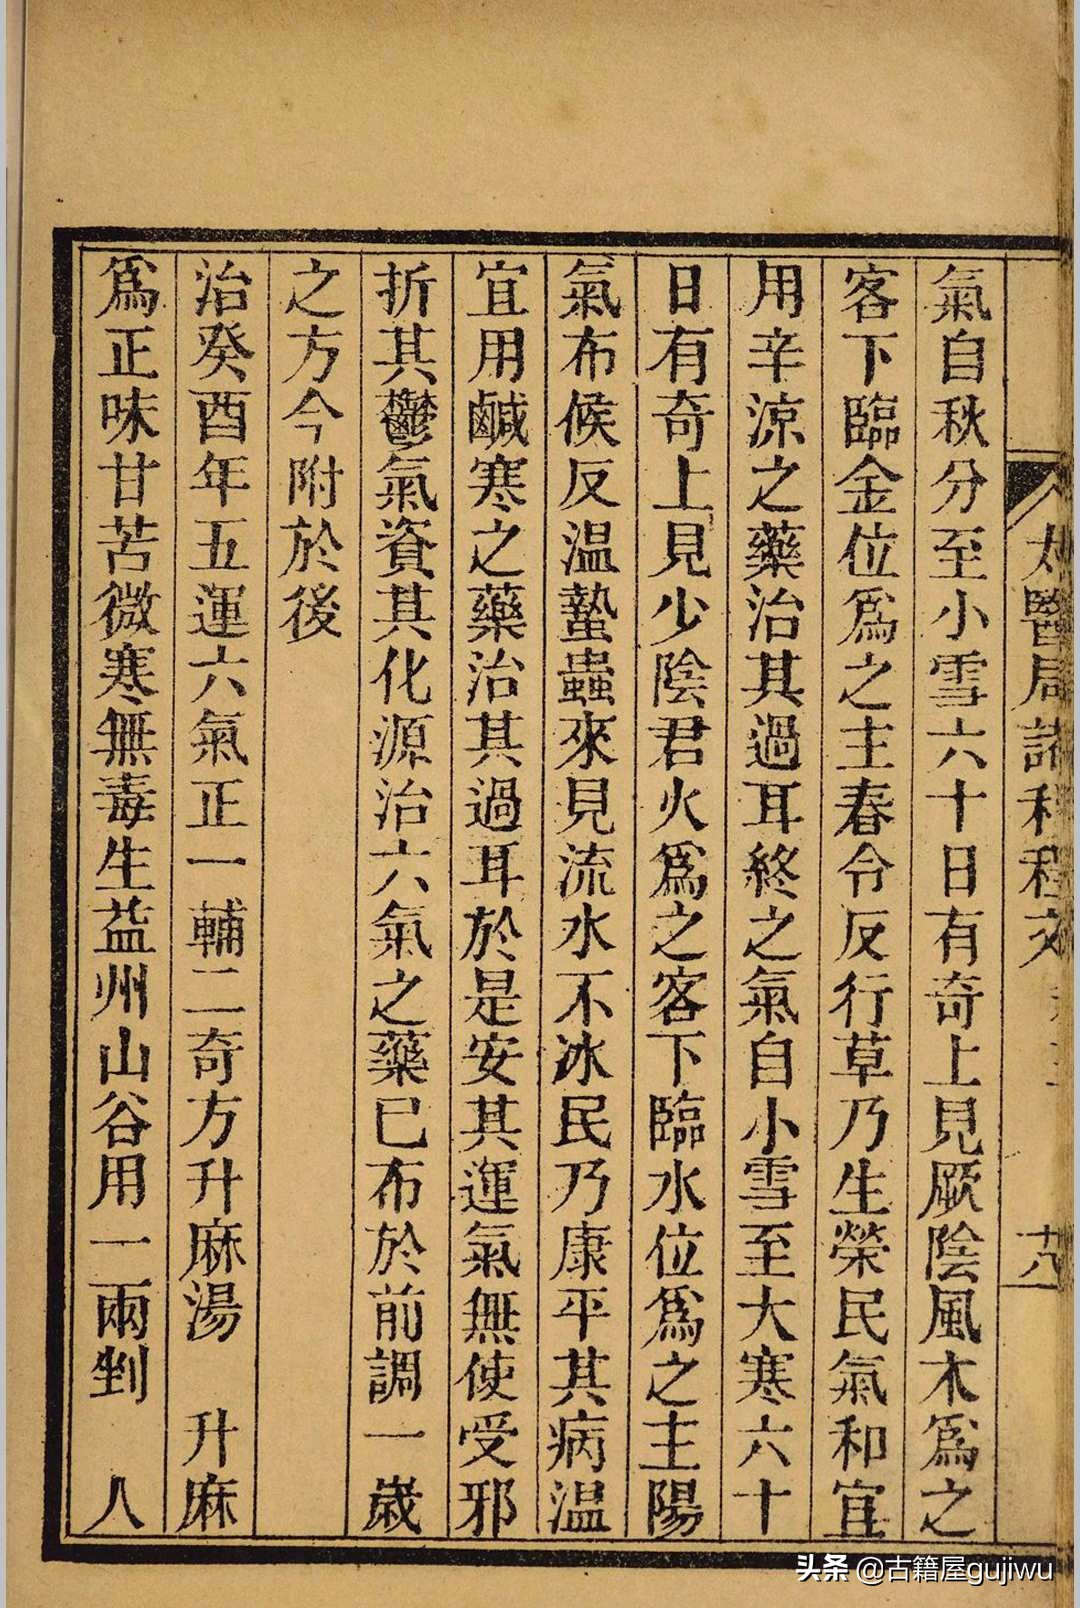 太醫局諸科程文
十八
氣自秋分至小雪六十日有奇上見厥陰風木爲之
客下臨金位爲之主春令反行草乃生榮民氣和宜
用辛涼之藥治其過耳終之氣自小雪至大寒六十
日有奇上見少陰君火爲之客下臨水位爲之主陽
氣布候反温蟄蟲來見流水不冰民乃康平其病温
宜用鹹寒之藥治其過耳於是安其運氣無使受邪
折其鬱氣資其化源治六氣之藥已布於前調一歲
之方今附於後
治癸酉年五運六氣正一輔二奇方升麻湯 升麻
爲正味甘苦微寒無毒生益州山谷用一兩剉 人
头条 @古籍屋gujiwu